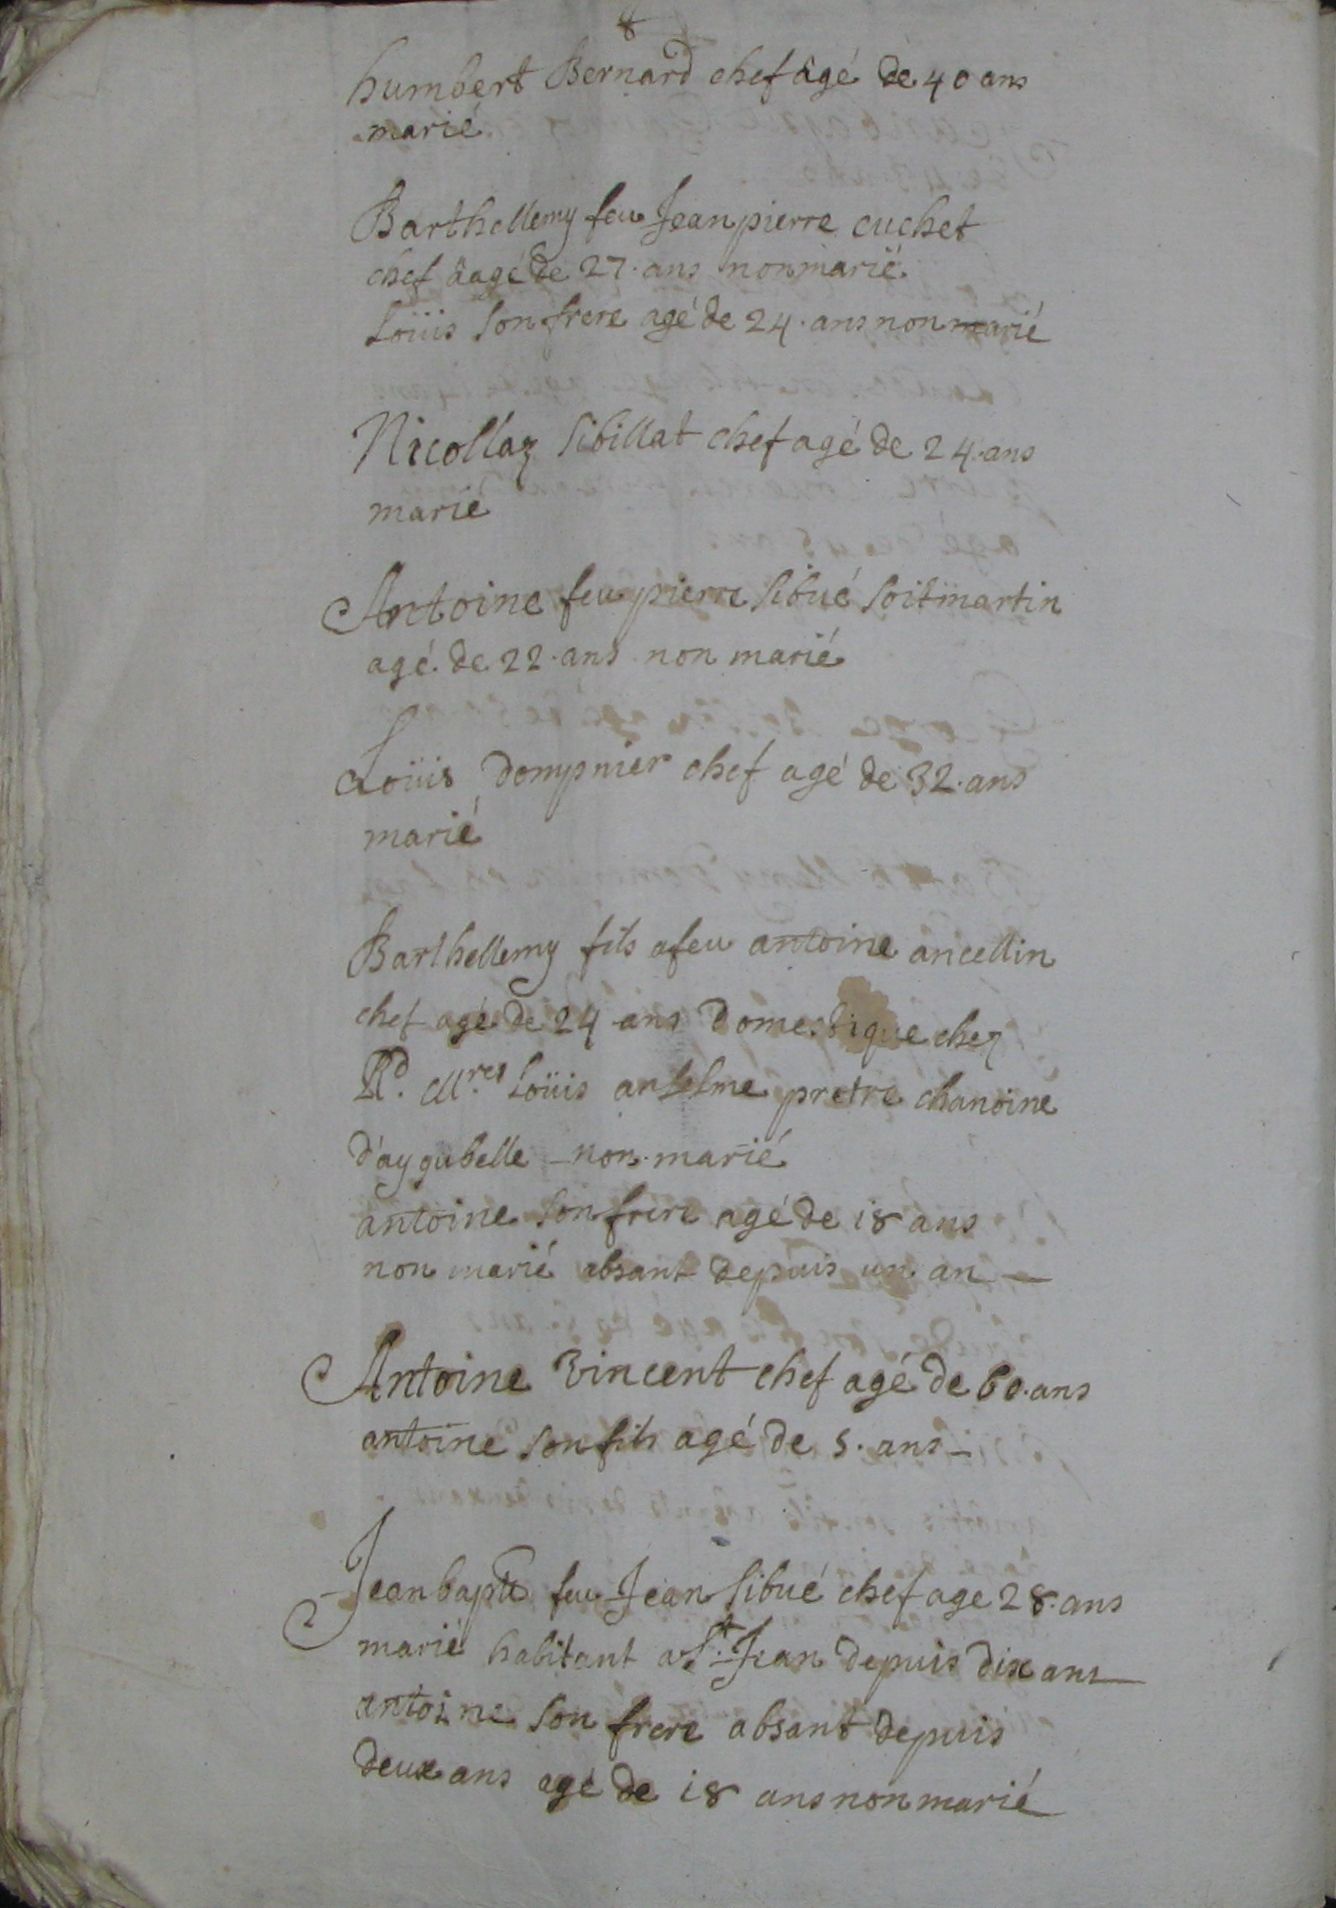 8
humbert Bernard chef âgé de 40 ans
marié
Barthellemy feu Jean pierre cuchet
chef âagé de 27. ans non marié
Loüis son frere agé de 24. ans non marié
Nicollaz Sibillat chef agé de 24. ans
marié
Antoine feu pierre Sibué soit martin
agé de 22. ans non marié
Loüis dompnier chef agé de 32. ans
marié
Barthellemy fils a feu antoine ancellin
chef agé de 24 ans domestique chez
Rd. Mres Loüis anselme pretre chanoine
d'aygubelle non marié
antoine son frere agé de 18 ans
non marié absant depuis un an
Antoine Vincent chef agé de 60. ans
antoine son fils agé de 5. ans
Jean bapte feu Jean Sibué chef age 28. ans
marié habitant a St. Jean depuis dix ans
antoine son frere absant depuis
deux ans agé de 18 ans non marié